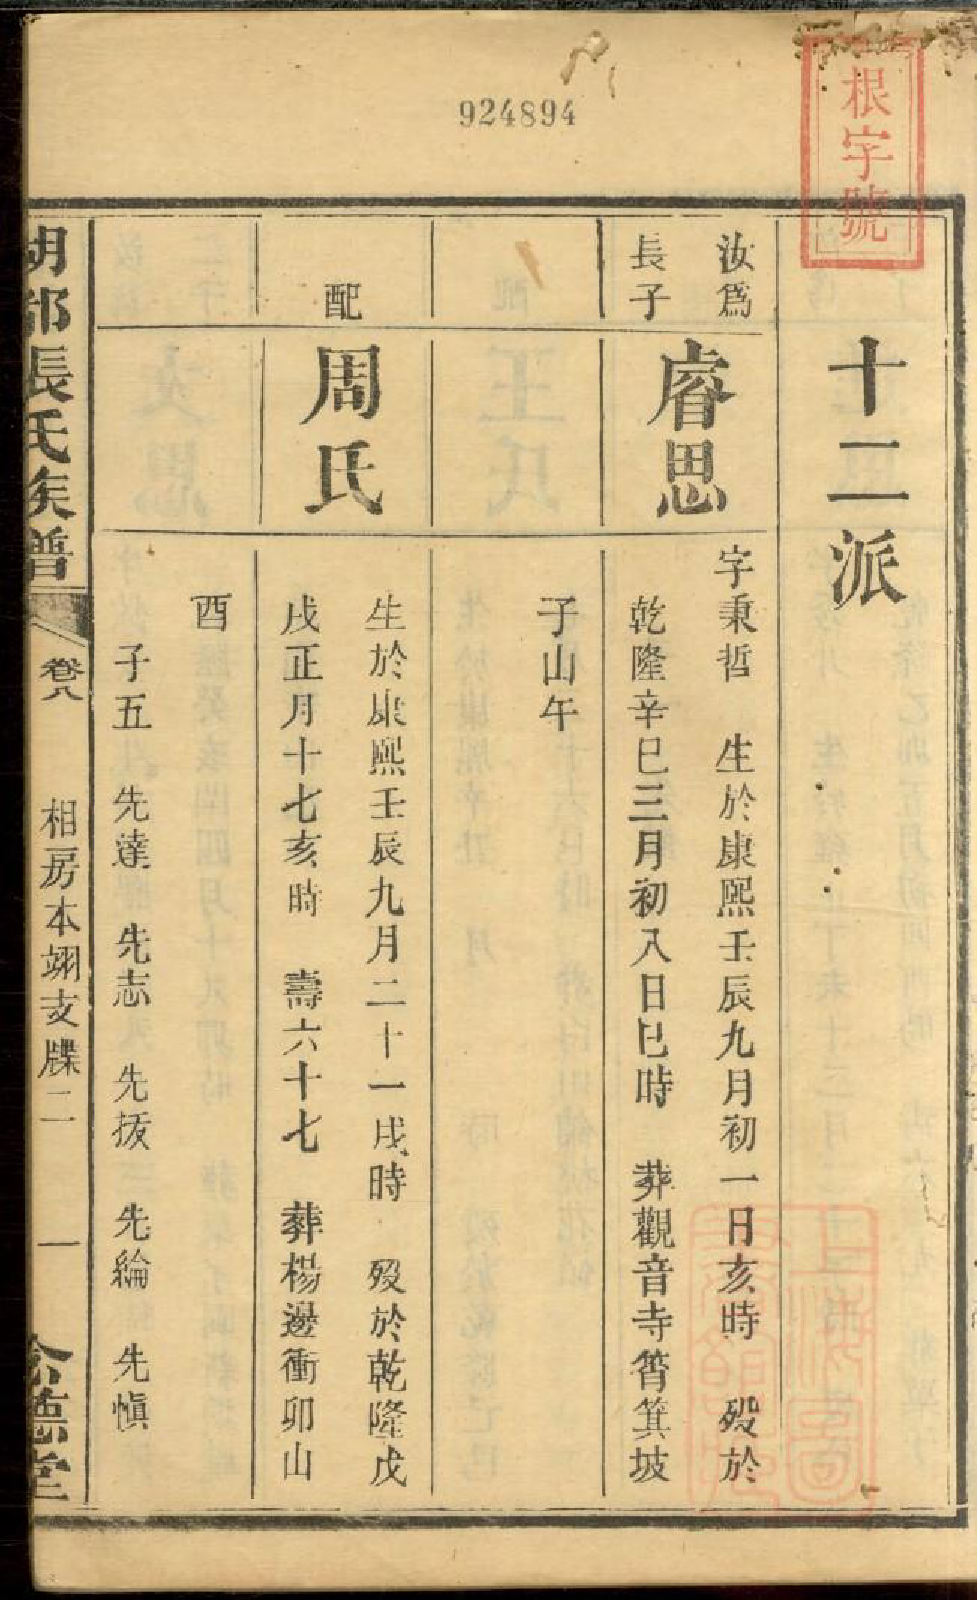 924894
根字號
十二派
汝為
長子
睿思
字秉哲 生於康熙壬辰九月初一日亥時 歿於
乾隆辛巳三月初八日巳時 葬觀音寺筲箕坡
子山午
配
周氏
生於康熙壬辰九月二十一戌時 歿於乾隆戊
戌正月十七亥時 壽六十七 葬楊邊衝卯山
酉
子五 先達 先志 先拔 先綸 先慎
胡部張氏族譜
卷八
相房本翊支牒二
一
德堂